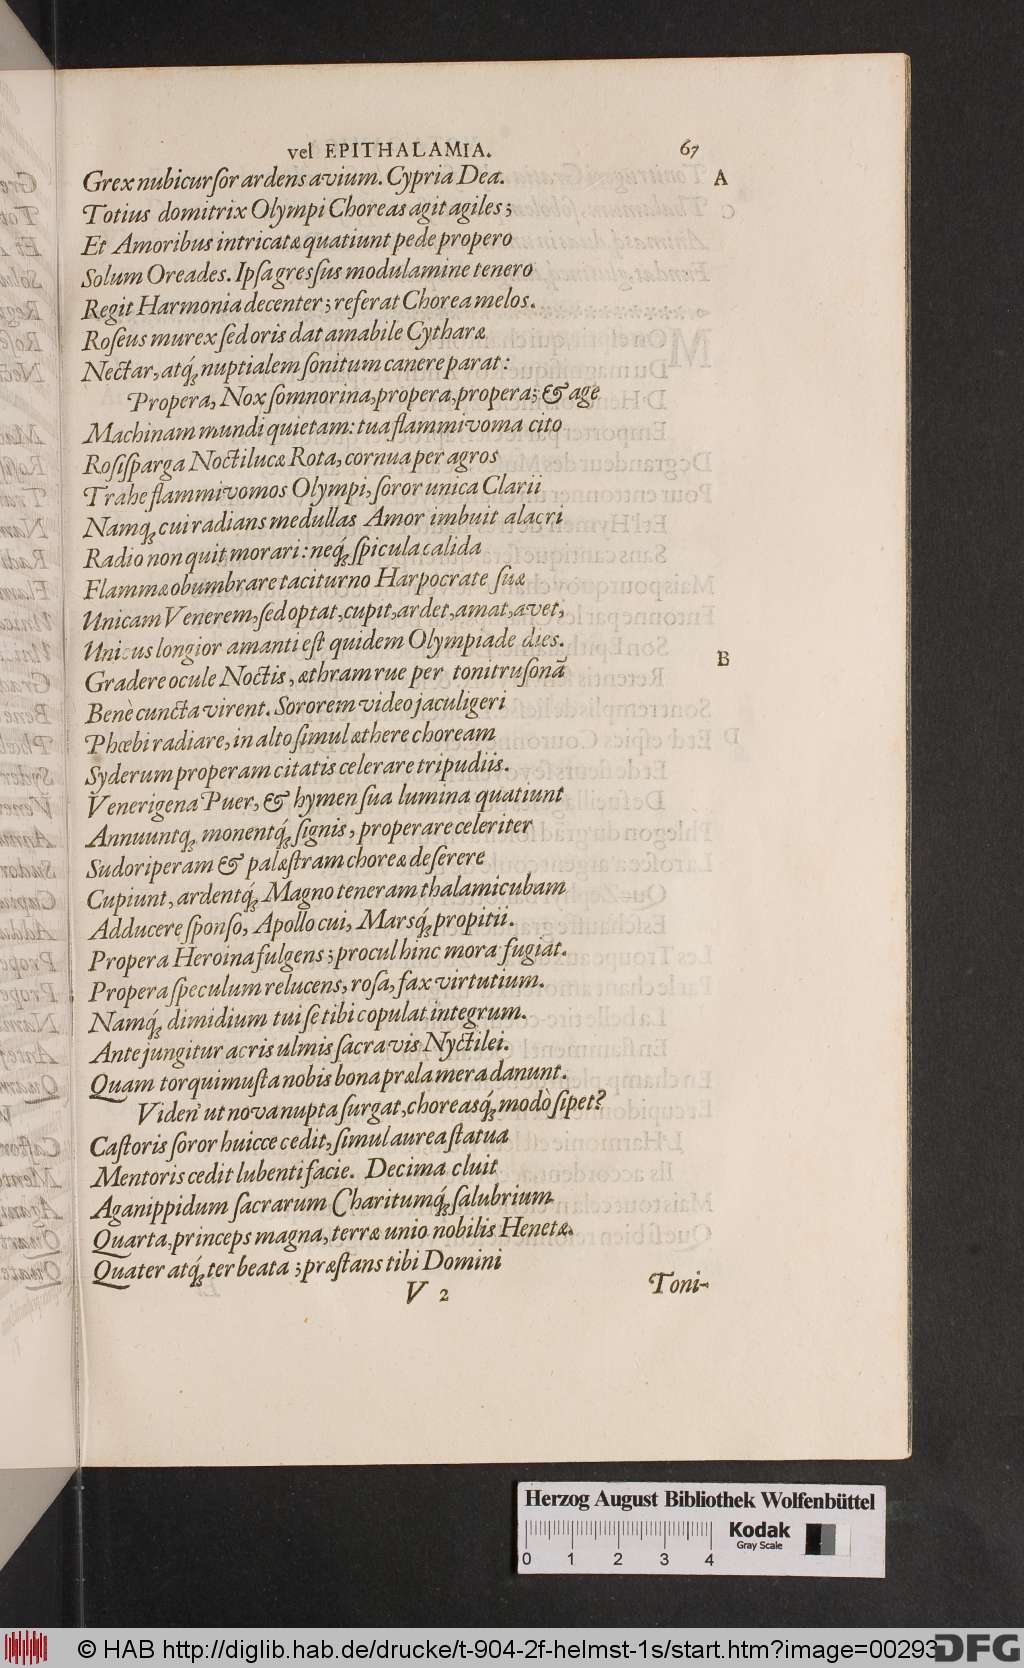 vel EPITHALAMIA. 67
Grex nubicursor ardens avium. Cypria Dea. A
Totius domitrix Olympi Choreas agit agiles;
Et Amoribus intricatæ quatiunt pede propero
Solum Oreades. Ipsa gressus modulamine tenero
Regit Harmonia decenter; referat Chorea melos.
Roseus murex sed oris dat amabile Cytharæ
Nectar, atq́; nuptialem sonitum canere parat:
Propera, Nox somnorina, propera, propera; & age
Machinam mundi quietam: tua flammivoma cito
Rosisparga Noctilucæ Rota, cornua per agros
Trahe flammivomos Olympi, soror unica Clarii
Namq; cui radians medullas Amor imbuit alacri
Radio non quit morari: neq́; spicula calida
Flammæ obumbrare taciturno Harpocrate suæ
Unicam Venerem, sed optat, cupit, ardet, amat, avet,
Unicus longior amanti est quidem Olympiade dies.
Gradere ocule Noctis, æthram rue per tonitrusonā B
Benè cuncta virent. Sororem video jaculigeri
Phœbi radiare, in alto simul æthere choream
Syderum properam citatis celerare tripudiis.
Venerigena Puer, & hymen sua lumina quatiunt
Annuuntq; monentq́; signis, properare celeriter
Sudoriperam & palæstram choreæ deserere
Cupiunt, ardentq́; Magno teneram thalami cubam
Adducere sponso, Apollo cui, Marsq́; propitii.
Propera Heroina fulgens; procul hinc mora fugiat.
Propera speculum relucens, rosa, fax virtutium.
Namq́; dimidium tui se tibi copulat integrum.
Ante jungitur acris ulmis sacra vis Nyctilei.
Quam torquimusta nobis bona præla mera danunt.
Viden' ut nova nupta surgat, choreasq́; modò sipet?
Castoris soror huicce cedit, simul aurea statua
Mentoris cedit lubenti facie. Decima cluit
Aganippidum sacrarum Charitumq́; salubrium
Quarta, princeps magna, terræ unio nobilis Henetæ.
Quater atq́; ter beata; præstans tibi Domini
V 2 Toni-
Herzog August Bibliothek Wolfenbüttel
Kodak
Gray Scale
0 1 2 3 4
© HAB http://diglib.hab.de/drucke/t-904-2f-helmst-1s/start.htm?image=00293
DFG